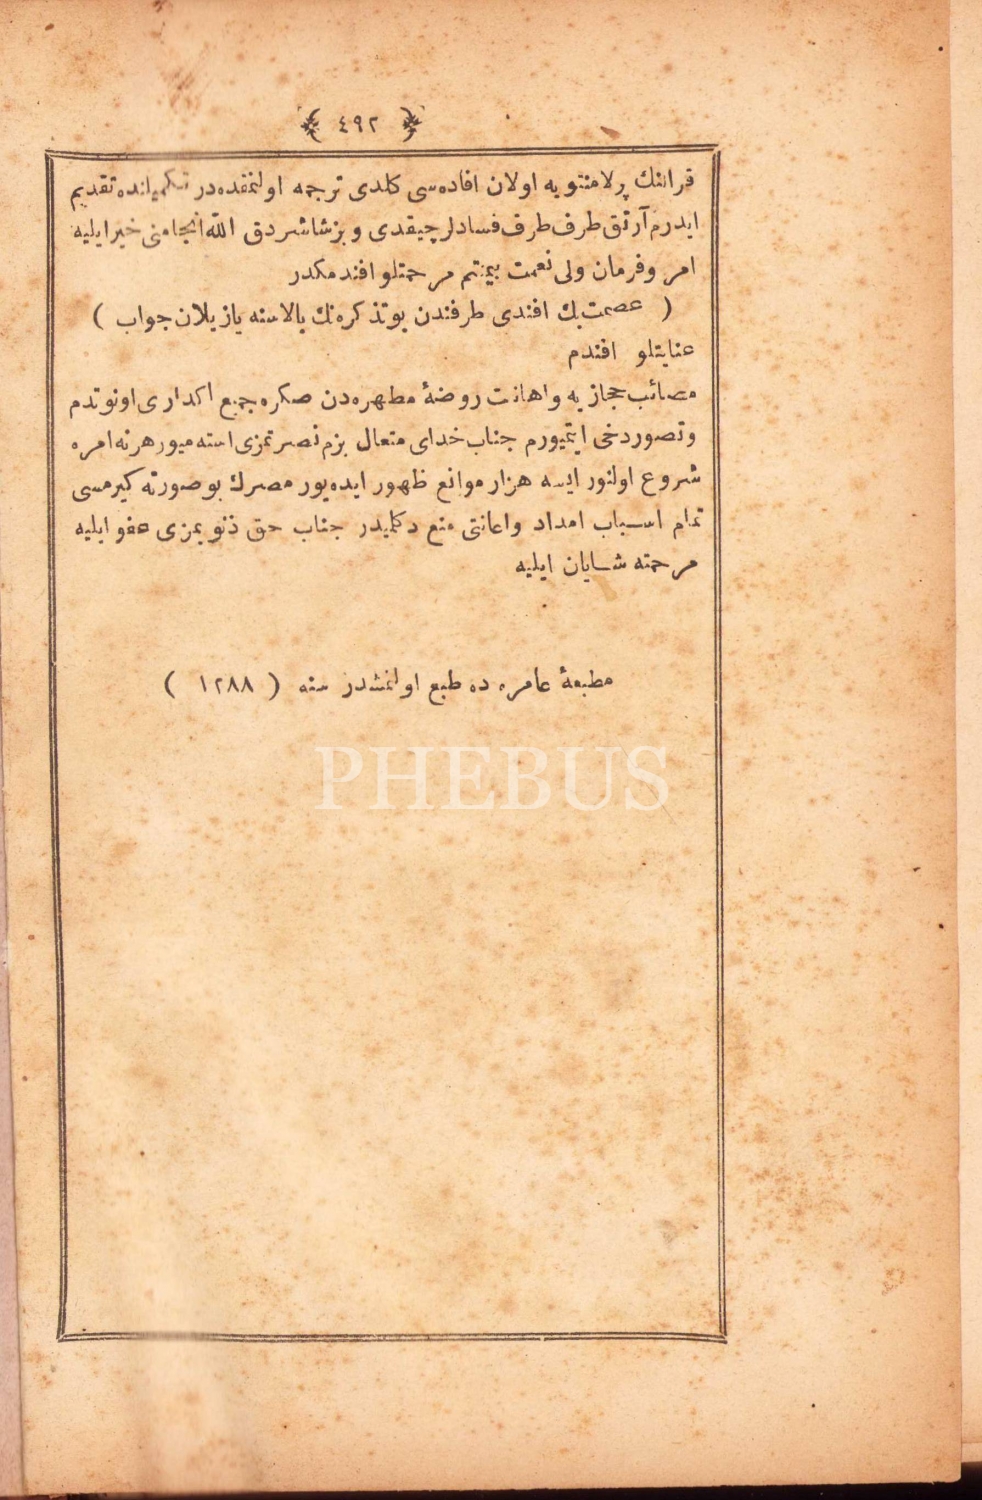 ﴿ ٤٩٢ ﴾
قرالنك پرلامنتویه اولان افاده‌سی كلدی ترجمه اولنمقده‌در تكمیلنده تقدیم
ایدرم آرتق طرف طرف فسادلر چیقدی و بز شاشردق الله انجامنی خیر ایلیه
امر و فرمان ولی نعمت بیمنتم مرحمتلو افندمكدر
( عصمت بك افندی طرفندن بو تذكره‌نك بالاسنه یازیلان جواب )
عنایتلو افندم
مصائب حجازیه و اهانت روضهٔ مطهره‌دن صكره جمیع اكداری اونوتدم
و تصور دخی ایتمیورم جناب خدای متعال بزم نصرتمزی استه‌میور هر نه امره
شروع اولنور ایسه هزار موانع ظهور ایده‌یور مصرك بو صورته كیرمسی
تمام اسباب امداد و اعانتی منع دكلیدر جناب حق ذنوبمزی عفو ایلیه
مرحمته شایان ایلیه
مطبعهٔ عامره ده طبع اولنمشدر سنه ( ١٢٨٨ )
PHEBUS